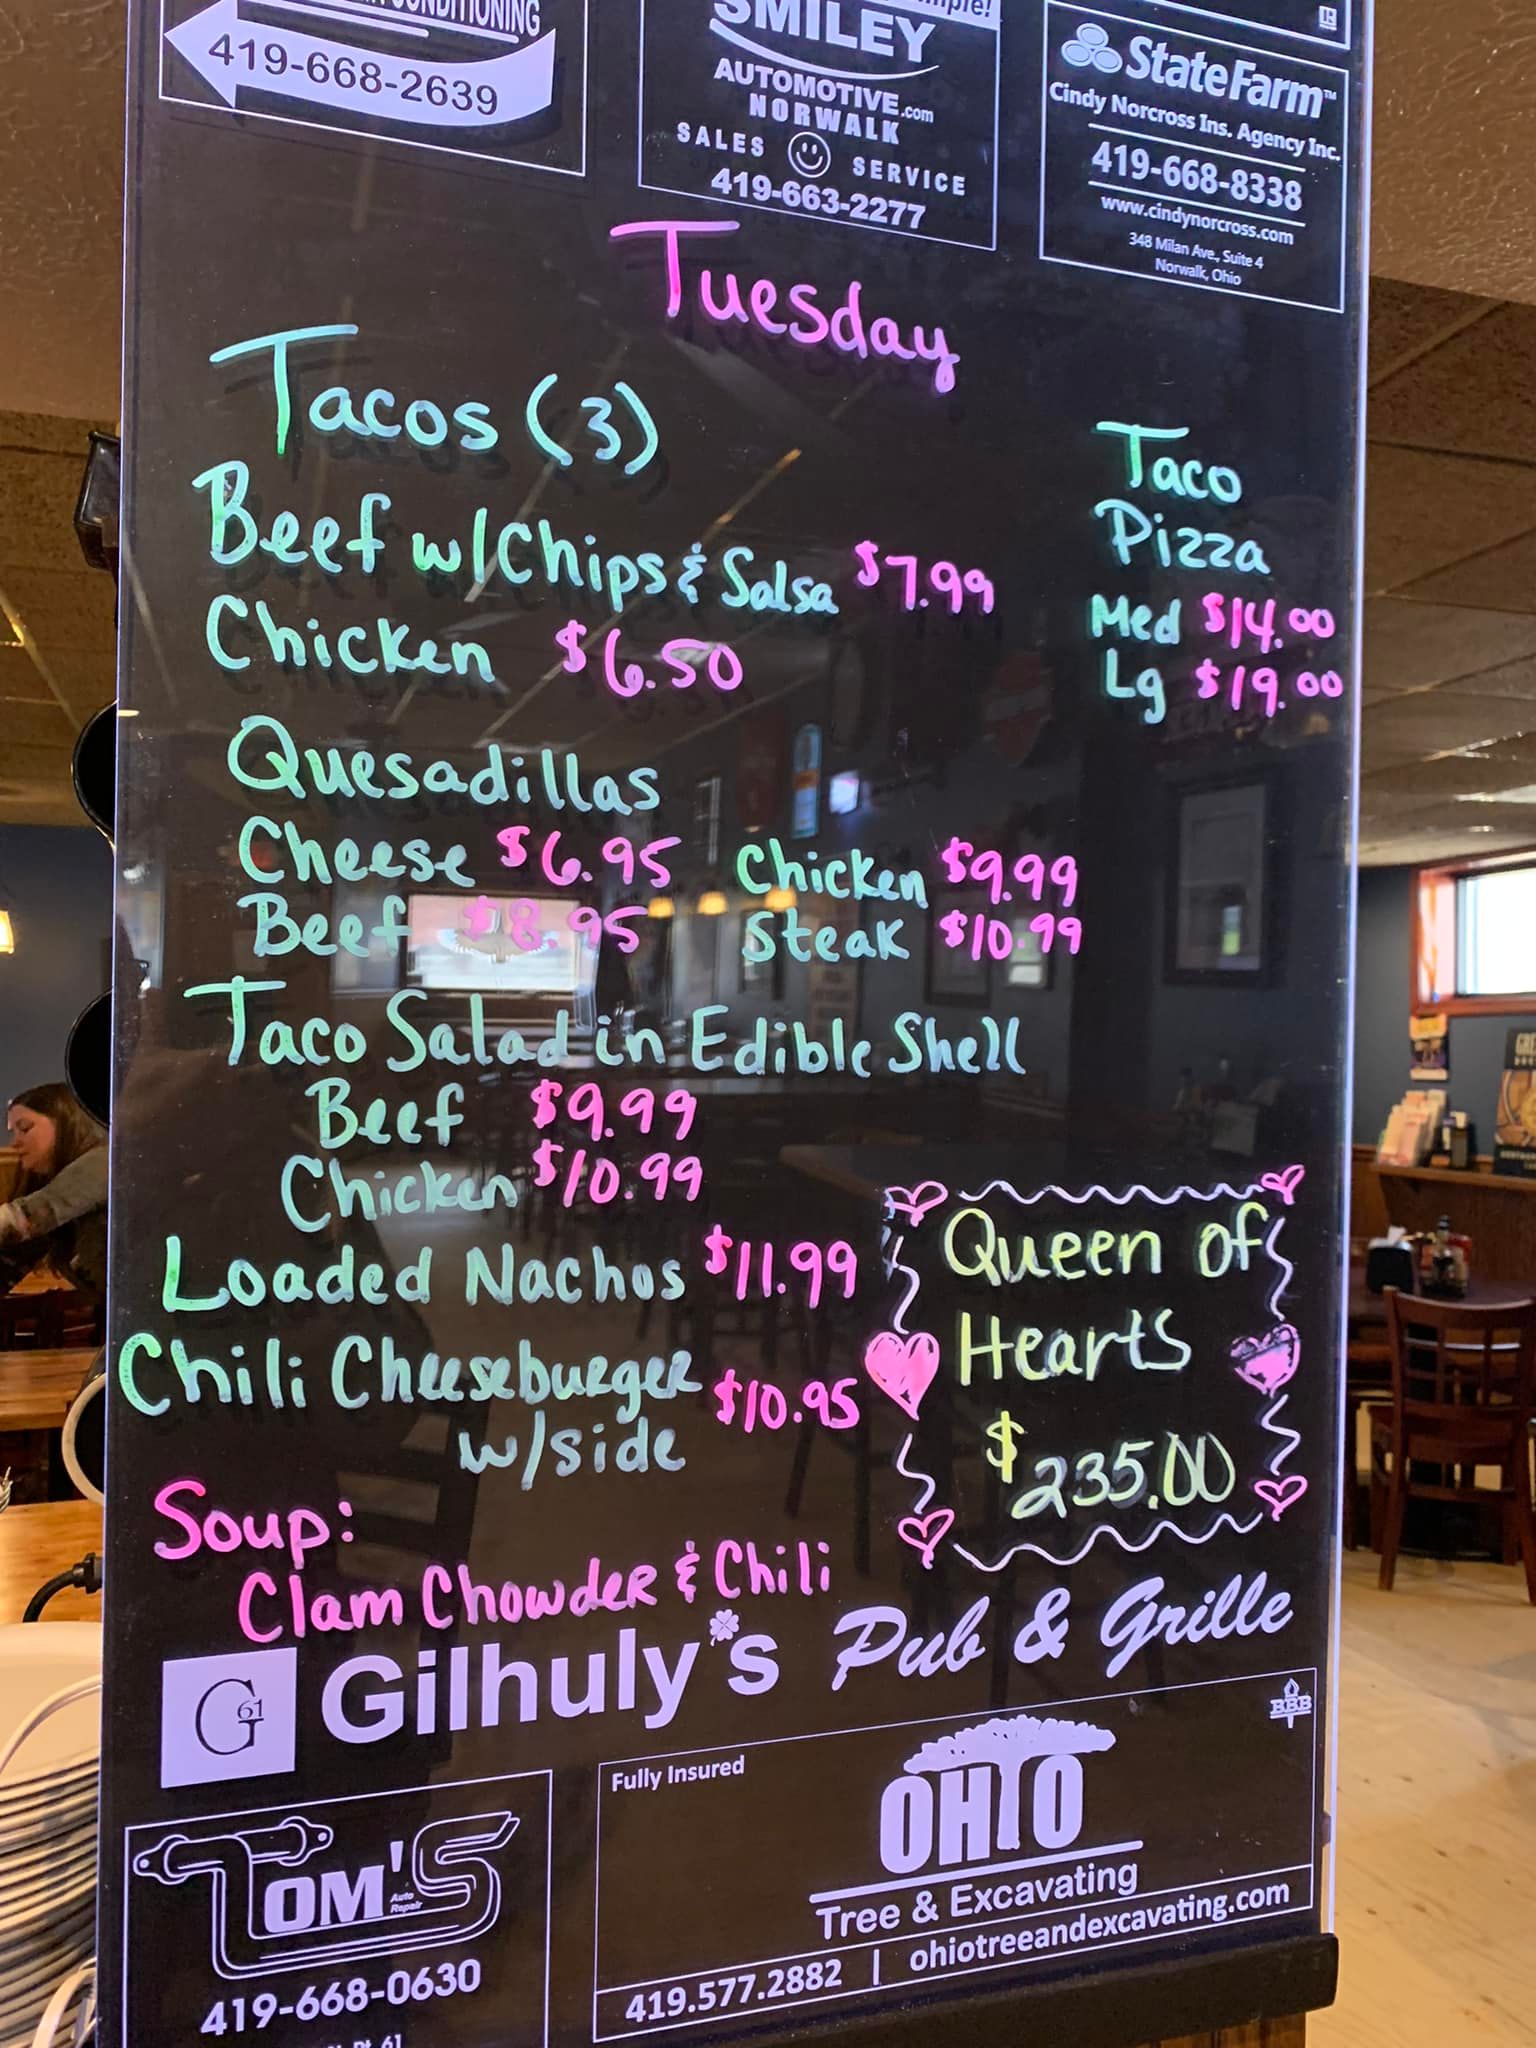 CONDITIONING
419-668-2639
SMILEY
AUTOMOTIVE.com
NORWALK
SALES SERVICE
419-663-2277
StateFarm™
Cindy Norcross Ins. Agency Inc.
419-668-8338
www.cindynorcross.com
348 Milan Ave., Suite 4
Norwalk, Ohio
Tuesday
Tacos (3)
Beef w/Chips & Salsa $7.99
Chicken $6.50
Taco
Pizza
Med $14.00
Lg $19.00
Quesadillas
Cheese $6.95 Chicken $9.99
Beef $8.95 Steak $10.99
Taco Salad in Edible Shell
Beef $9.99
Chicken $10.99
Loaded Nachos $11.99
Chili Cheeseburger $10.95
w/side
Queen of
Hearts
$235.00
Soup:
Clam Chowder & Chili
G61 Gilhuly's Pub & Grille
Tom's
Auto
Repair
419-668-0630
Fully Insured
BBB
OHIO
Tree & Excavating
419.577.2882 | ohiotreeandexcavating.com